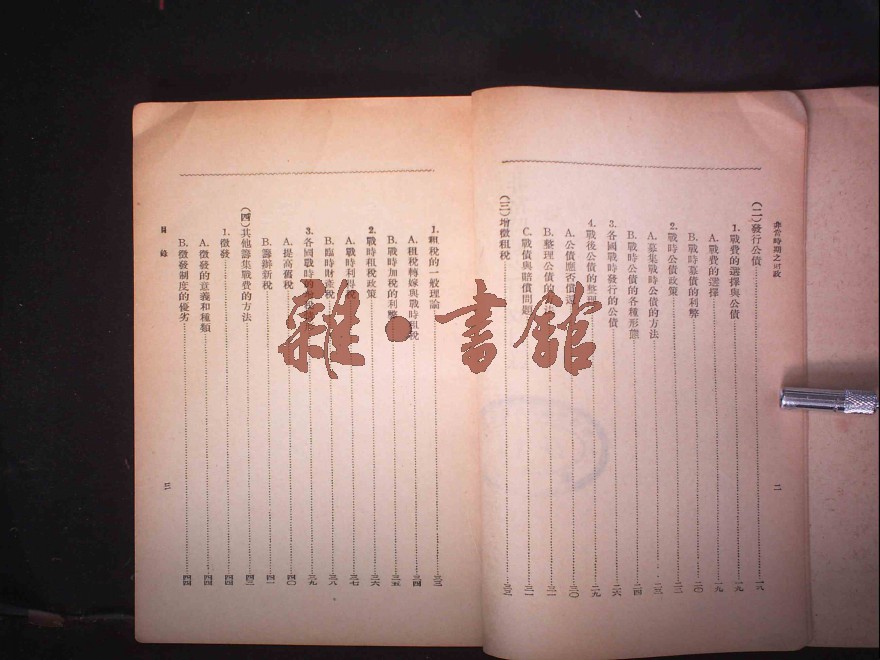 非常時期之財政
(二)發行公債……一八
1.戰費的選擇與公債……一九
A.戰費的選擇……一九
B.戰時募債的利弊……二〇
2.戰時公債政策……二二
A.募集戰時公債的方法……二二
B.戰時公債的各種形態……二四
3.各國戰時發行的公債……二六
4.戰後公債的整理……二九
A.公債應否償還……三〇
B.整理公債的……三一
C.戰債與賠償問題……三一
(三)增徵租稅……三三
二
1.租稅的一般理論……三三
A.租稅轉嫁與戰時租稅……三四
B.戰時加稅的利弊……三五
2.戰時租稅政策……三六
A.戰時利得稅……三七
B.臨時財產稅……三八
3.各國戰時的……三九
A.提高舊稅……四〇
B.籌辦新稅……四一
(四)其他籌集戰費的方法……四三
1.徵發……四四
A.徵發的意義和種類……四四
B.徵發制度的優劣……四四
目錄
三
雜·書館